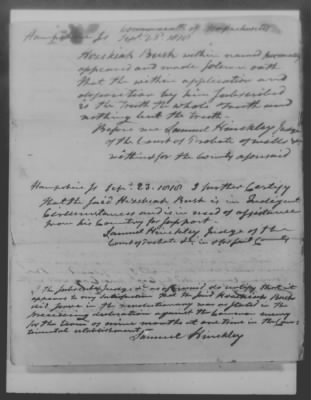 Commonwealth of Massachusetts
Hampshire Ss Sept. 23. 1818
Hezekiah Rush within named personally
appeared and made solemn oath
that the within application and
disposition by him subscribed
is the Truth the whole Truth and
nothing but the Truth.
Before me Samuel Hinckley Judge
of the Court of Probate of wills &c
within & for the County aforesaid
Hampshire Ss Sept. 23. 1818 I further Certify
that the said Hezekiah Rush is in Indigent
Circumstances and is in need of assistance
from his Country for support.
Samuel Hinckley Judge of the
Court of Probate &c in & for said County
I the subscribed Judge &c as aforesaid do certify that it
appears to my satisfaction that the said Hezekiah Rush
did serve in the revolutionary war as stated in the
preceding declaration against the Common enemy
for the term of nine months at one time in the Con-
tinental establishment
Samuel Hinckley